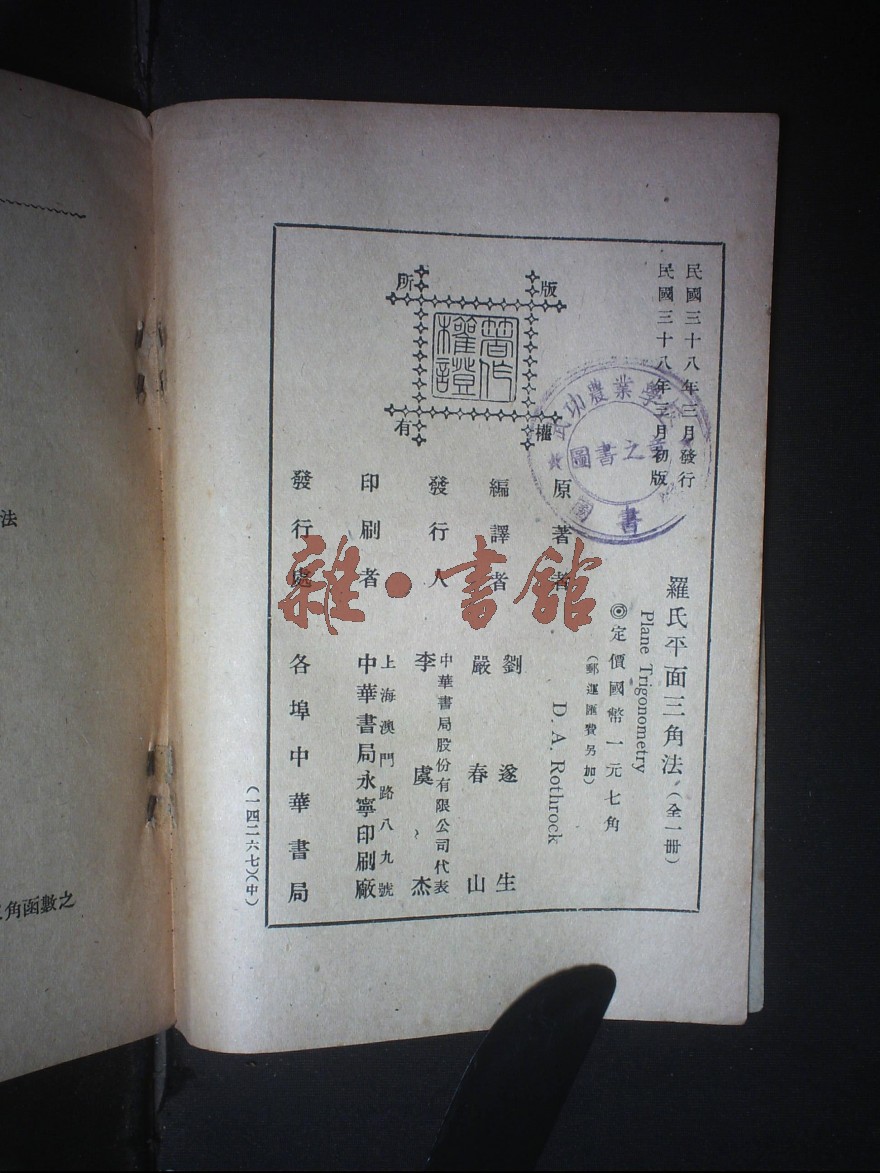 民國三十八年三月發行
民國三十八年三月初版
羅氏平面三角法(全一册)
Plane Trigonometry
◎定價國幣一元七角
(郵運匯費另加)
版權所有
著作權證
原著者 D. A. Rothrock
編譯者 劉遂生
嚴春山
發行人 李虞杰
中華書局股份有限公司代表
印刷者 中華書局永寧印刷廠
上海澳門路八九號
發行處 各埠中華書局
(一四二六七)(中)
武功農業學
圖書之章
書
雜·書館
法
角函數之